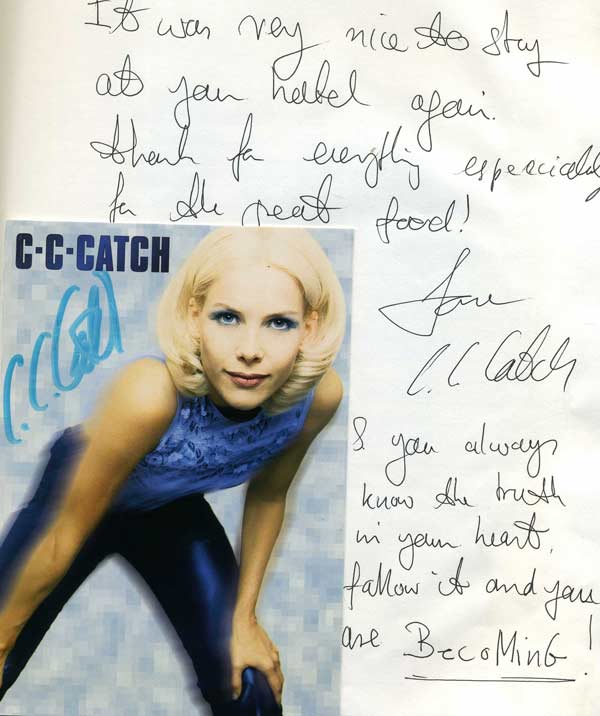 It was very nice to stay
at your hotel again.
thank for everything especially
for the great food!
C·C·CATCH
C.C. Catch
Love
C.C. Catch
& you always
know the truth
in your heart,
follow it and you
are BecoMinG!